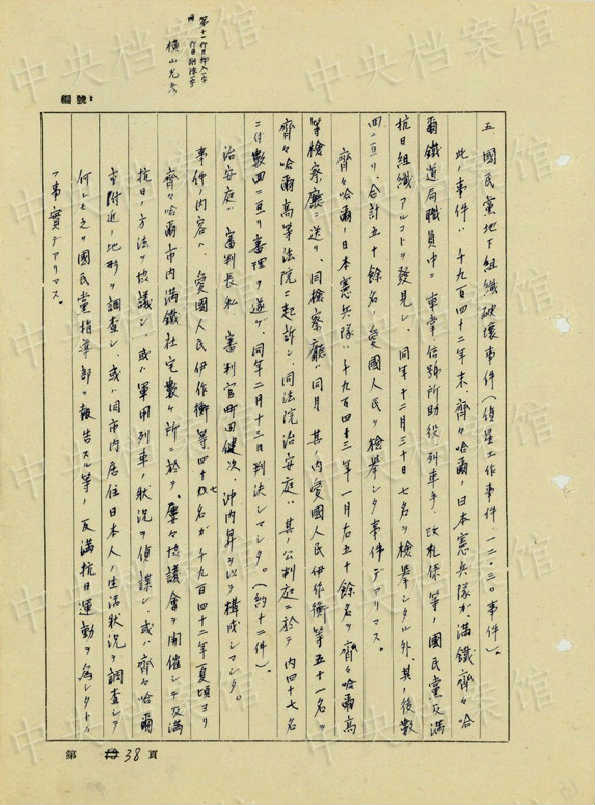 編號:
橫山光彦
五、國民黨地下組織破壞事件（偵星工作事件一二・三〇事件）。
此ノ事件ハ千九百四十二年末、齊々哈爾ノ日本憲兵隊ガ滿鐵齊々哈
爾鐵道局職員中ニ車掌信號所助役列車手、改札係等ノ國民黨反滿
抗日組織アルコトヲ發見シ、同年十二月三十日七名ヲ檢擧シタル外、其ノ後數
回ニ亙リ、合計五十餘名ノ愛國人民ヲ檢擧シタ事件デアリマス。
齊々哈爾ノ日本憲兵隊ハ千九百四十三年一月右五十餘名ヲ齊々哈爾高
等檢察廳ニ送リ、同檢察廳ハ同月其ノ內愛國人民伊作衡等五十一名ヲ
齊々哈爾高等法院ニ起訴シ、同法院治安庭ハ其ノ公判庭ニ於テ內四十七名
ニ付數回ニ亙リ審理ヲ遂ゲ、同年二月十二日判決シマシタ。（約十二件）。
治安庭ハ審判長私 審判官町田健次、沖內昇ヲ以テ構成シマシタ。
事件ノ內容ハ、愛國人民伊作衡等四十七名ガ千九百四十二年夏頃ヨリ
齊々哈爾市內滿鐵社宅數ケ所ニ於テ、屢々協議會ヲ開催シテ反滿
抗日ノ方法ヲ協議シ、或ハ軍用列車ノ狀況ヲ偵諜シ、或ハ齊々哈爾
市附近ノ地形ヲ調査シ、或ハ同市內居住日本人ノ生活狀況ヲ調査シテ
何レモ之ヲ國民黨指導部ニ報告スル等ノ反滿抗日運動ヲ爲シタトノ
事實デアリマス。
第 38 頁
中央档案馆